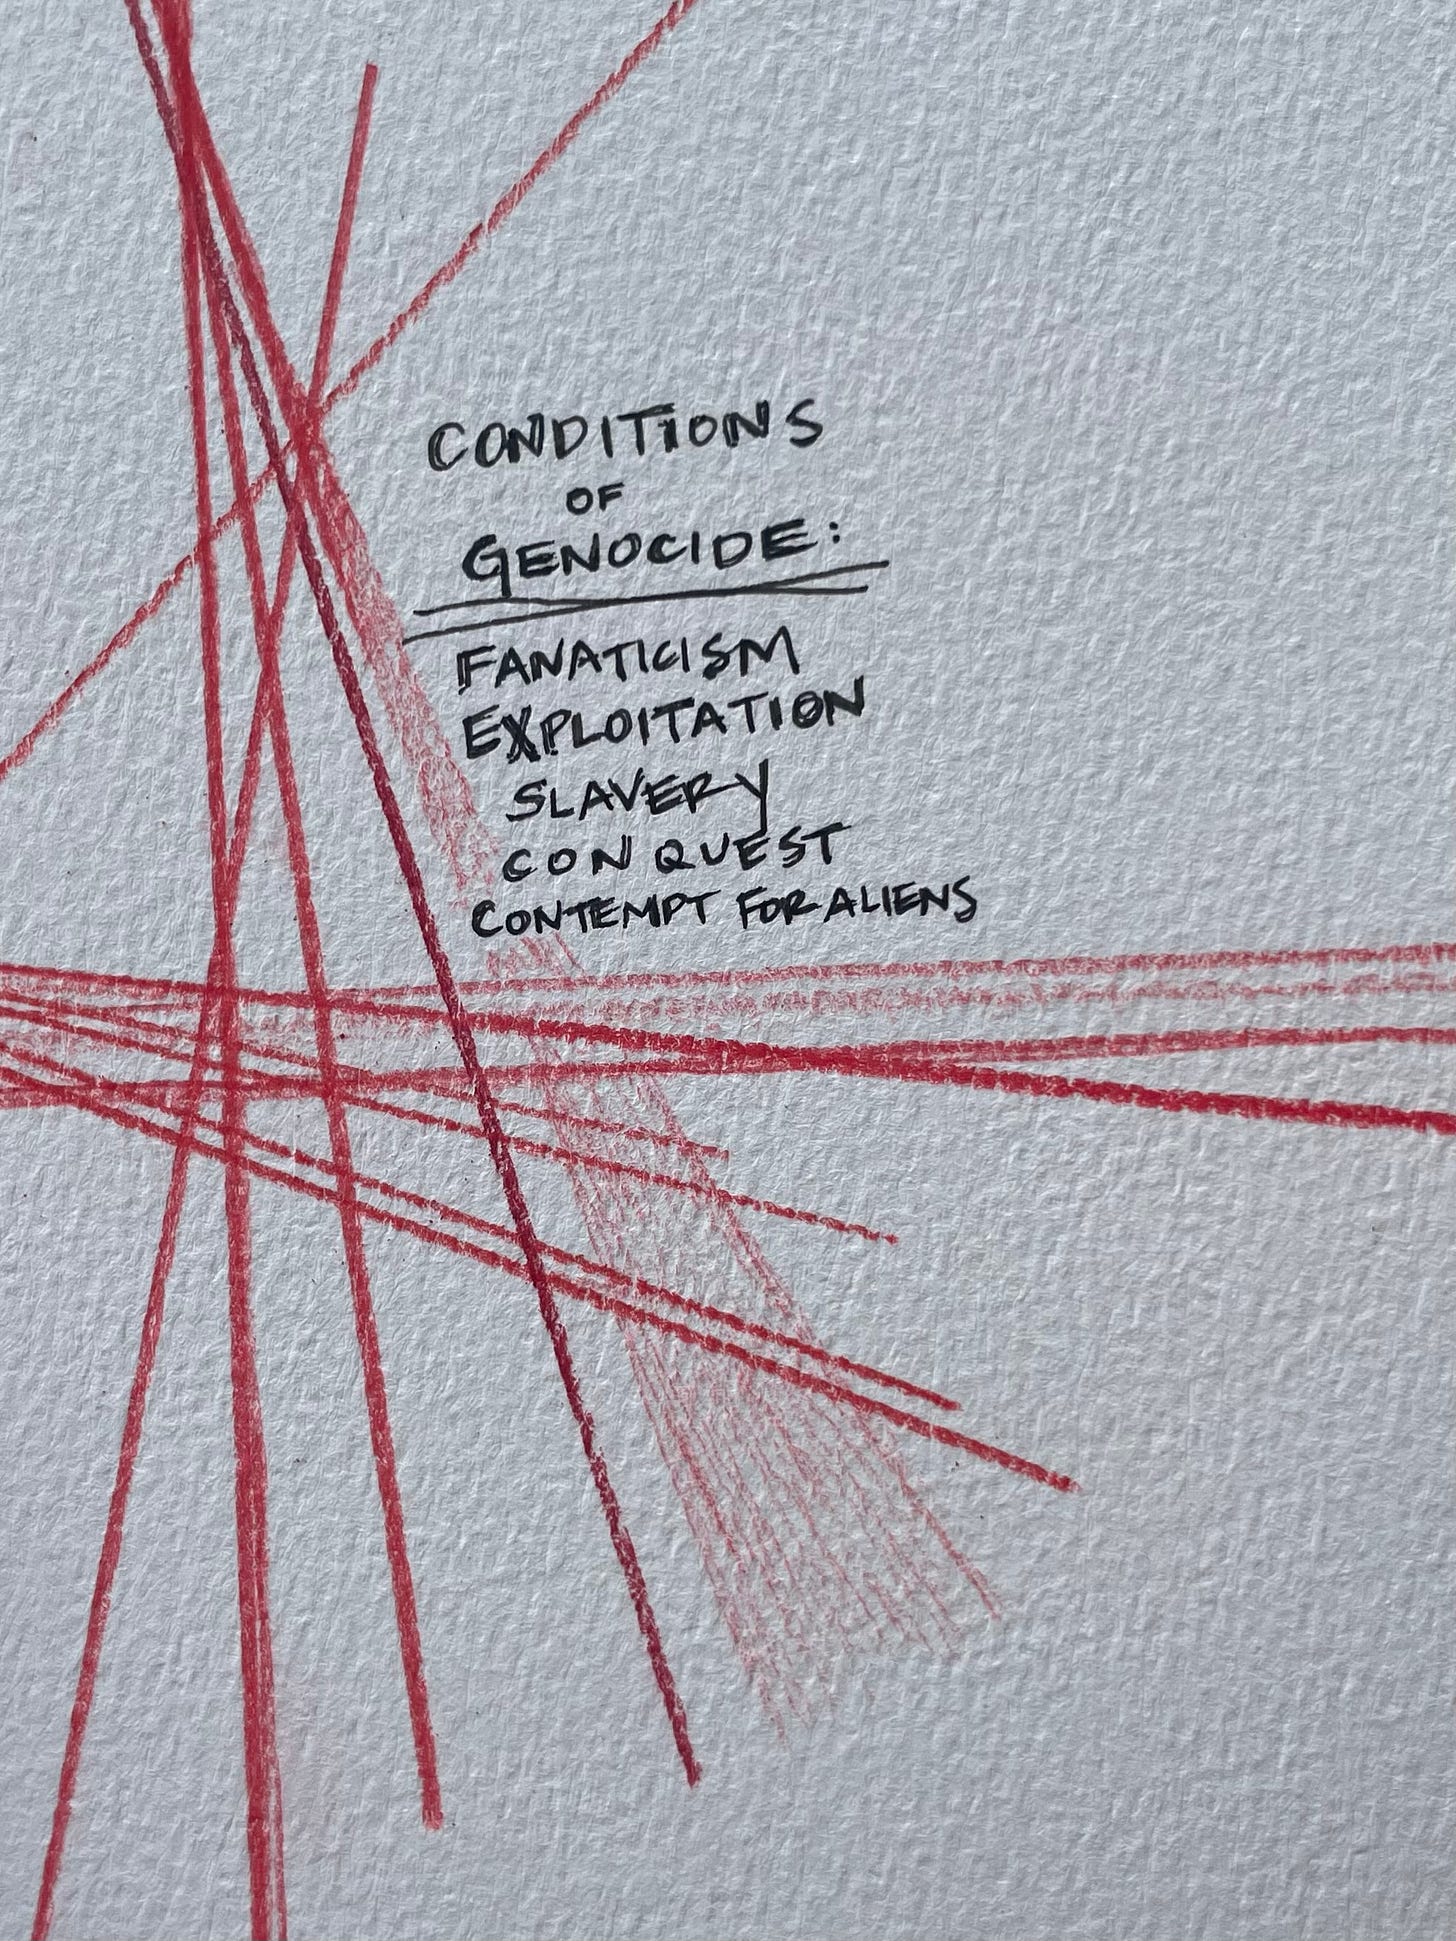 CONDITIONS
OF
GENOCIDE:
FANATICISM
EXPLOITATION
SLAVERY
CONQUEST
CONTEMPT FOR ALIENS